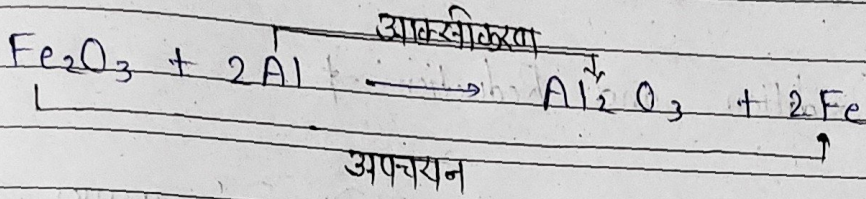 आक्सीकरण
Fe₂O₃ + 2Al → Al₂O₃ + 2Fe
अपचयन